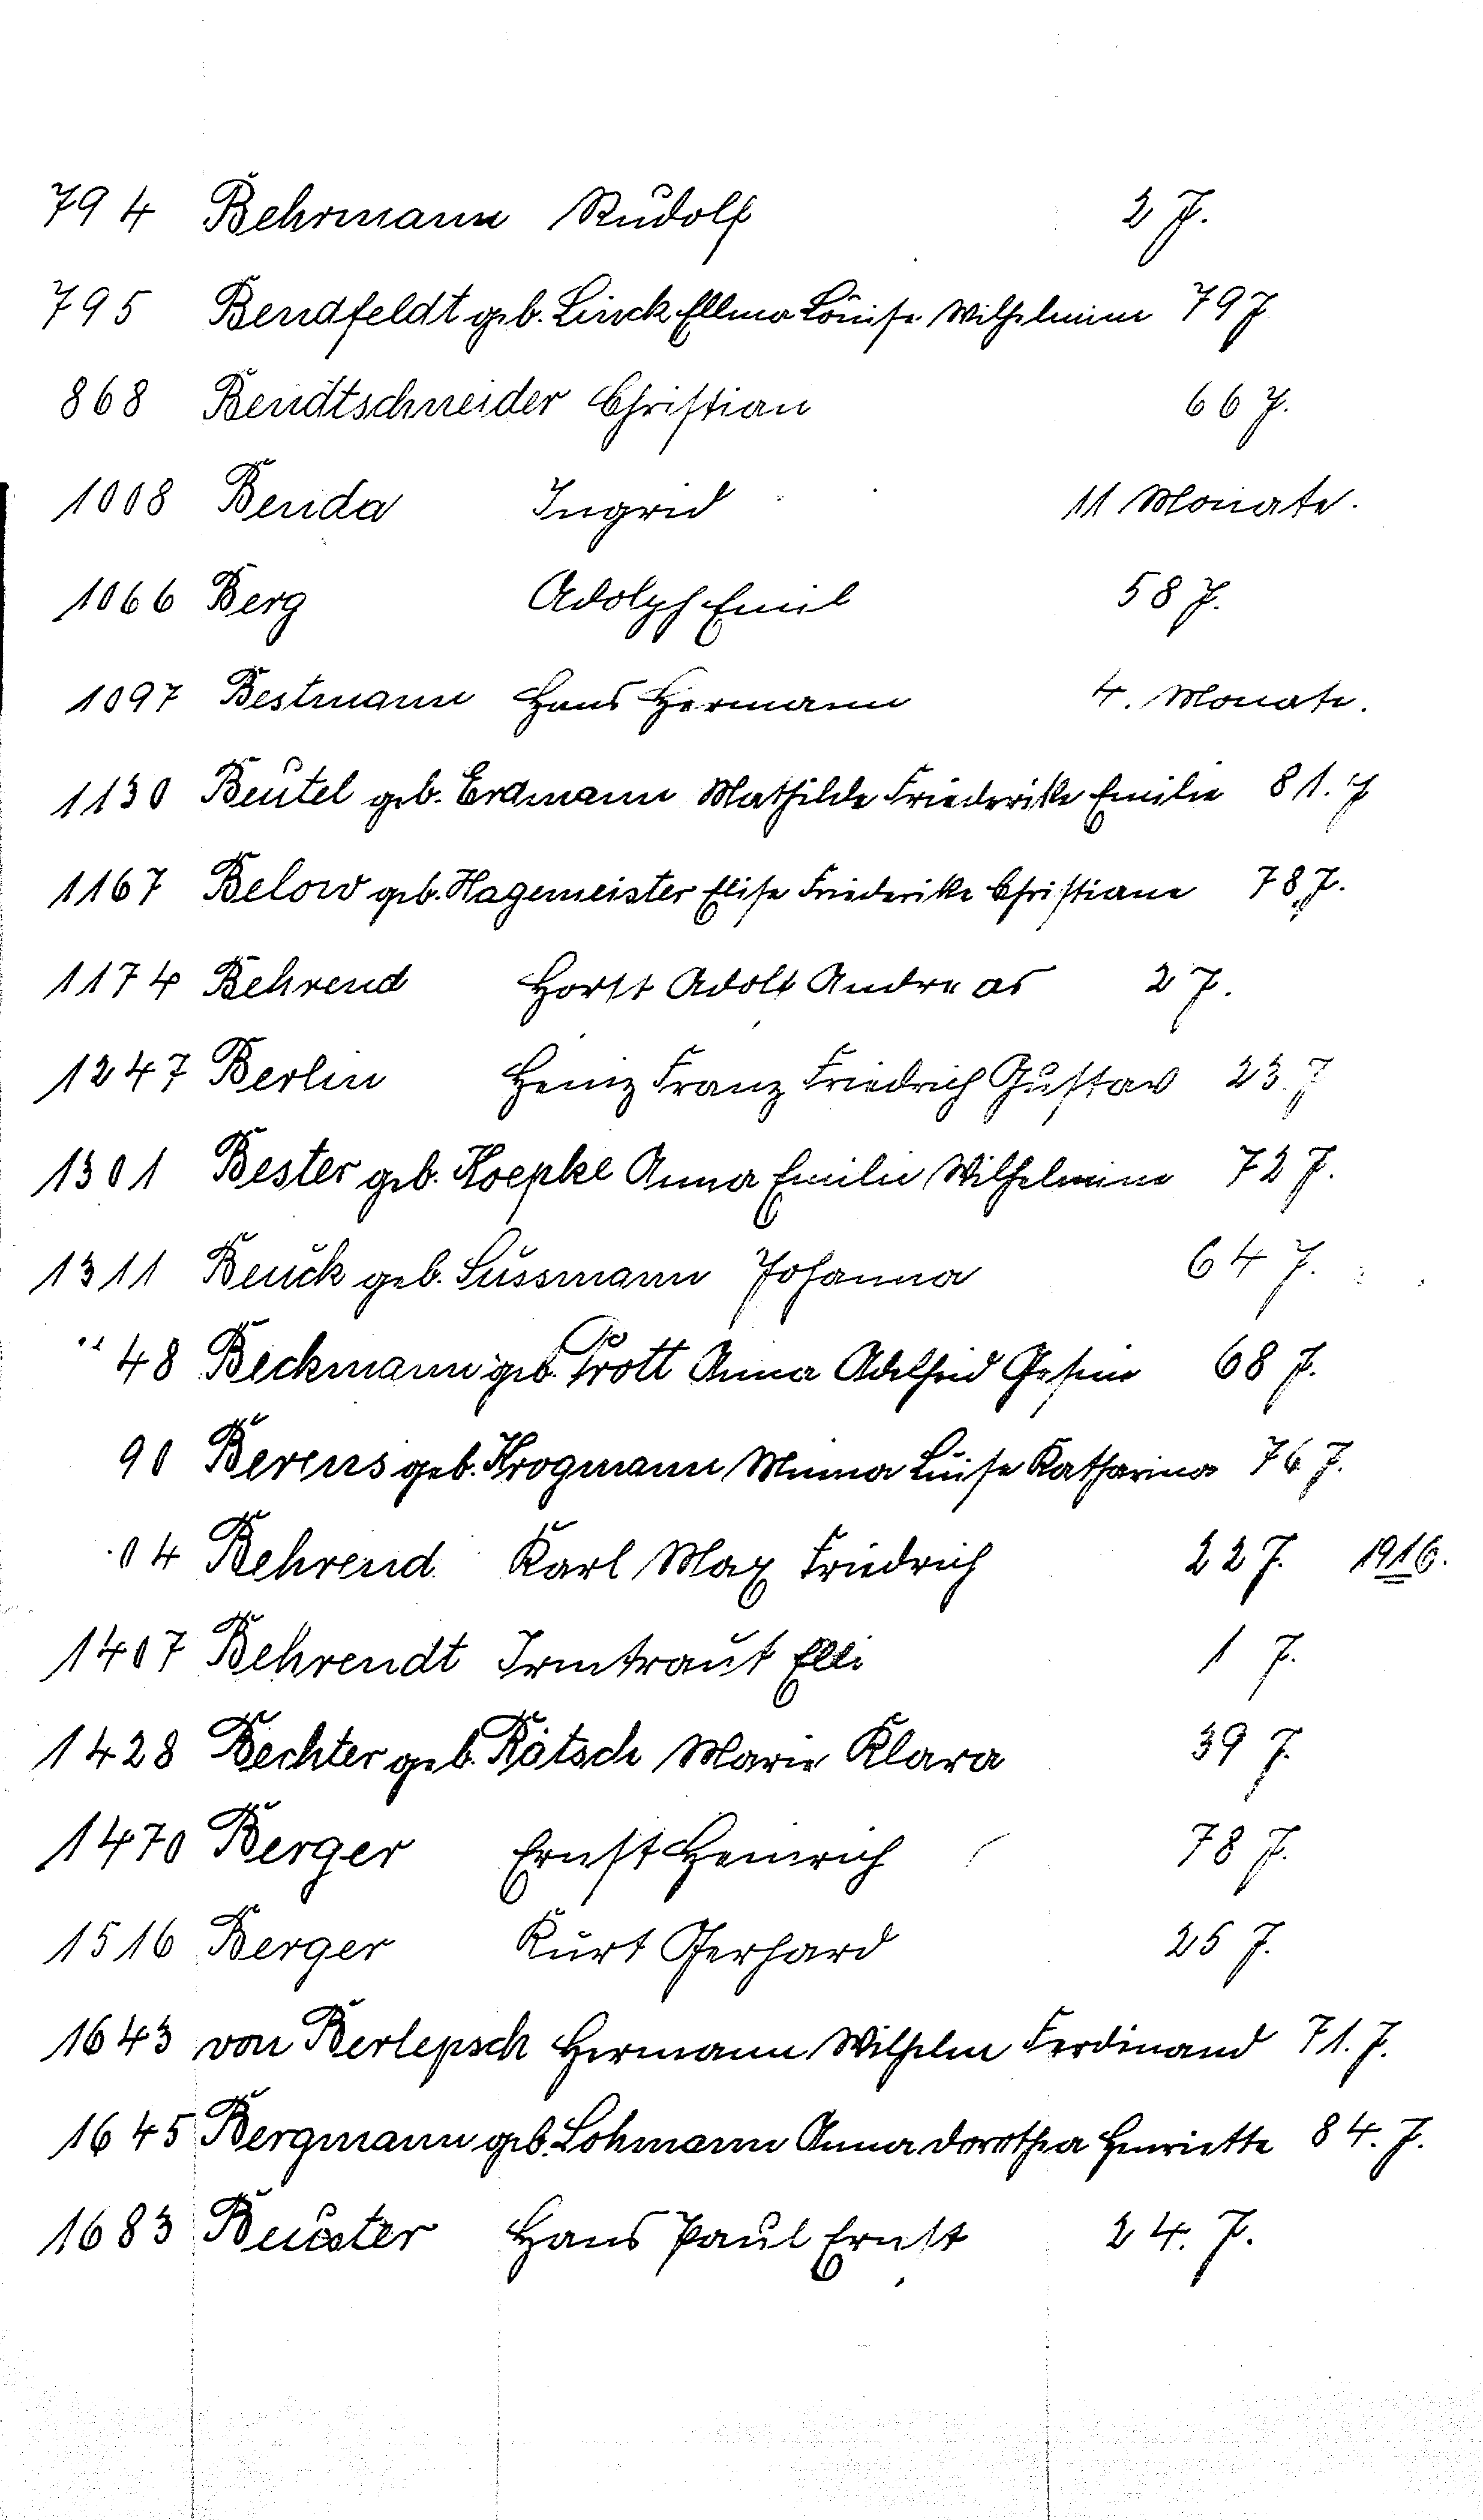 794 Behrmann Rudolf 2 J.
795 Bendfeldt geb. Linck Ellma Louise Wilhelmine 79 J
868 Bendtschneider Christian 66 J.
1008 Benda Ingrid 11 Monate.
1066 Berg Adolph Emil 58 J.
1097 Bestmann Hans Hermann 4. Monate.
1130 Beutel geb. Erdmann Mathilde Friederike Emilie 81. J
1167 Below geb. Hagemeister Elise Friederike Christiane 78 J.
1174 Behrend Horst Adolf Andreas 2 J.
1247 Berlin Heinz Franz Friedrich Gustav 23. J
1301 Bester geb. Koepke Anna Emilie Wilhelmine 72 J.
1311 Beuck geb. Süssmann Johanna 64 J.
" 48 Beckmann geb. Prott Anna Adelheid Gesine 68 J.
90 Berens geb. Krogmann Minna Luise Katharina 76 J.
04 Behrend Karl Max Friedrich 22 J. 1916.
1407 Behrendt Irmtraut Elli 1 J.
1428 Bechter geb. Rätsch Marie Klara 39 J.
1470 Berger Ernst Heinrich 78 J.
1516 Berger Kurt Gerhard 25 J.
1643 von Berlepsch Hermann Wilhelm Ferdinand 71. J.
1645 Bergmann geb. Lohmann Anna Dorothea Henriette 84. J.
1683 Beuster Hans Paul Ernst 24. J.